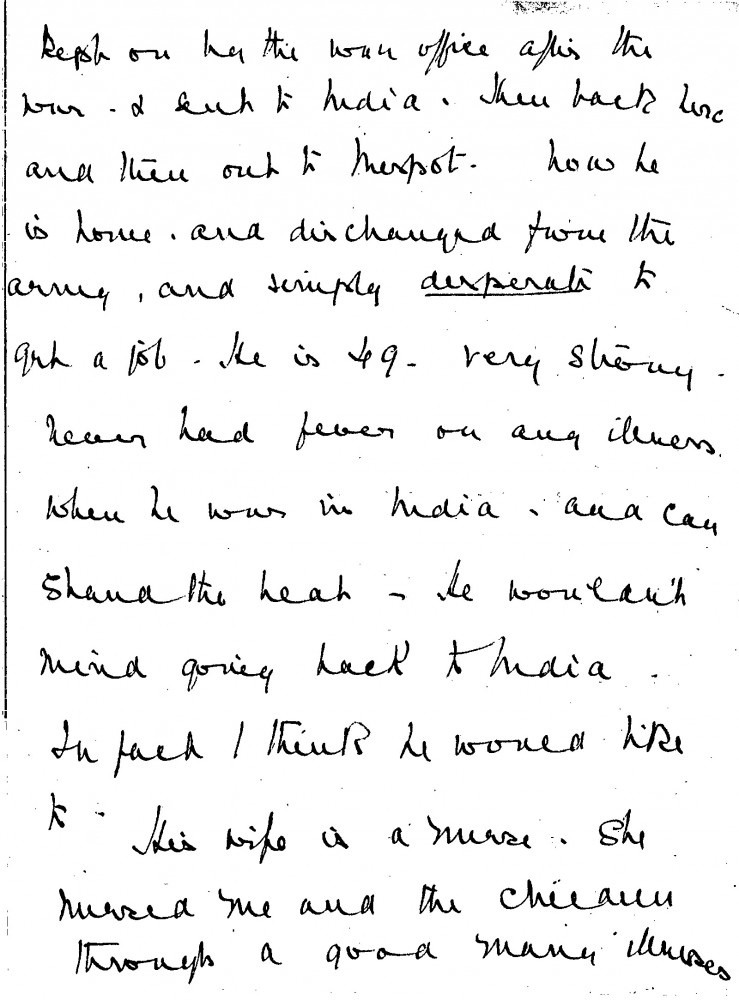 kept on by the war office after the
war - & sent to India. Then back here
and then out to Mespot. Now he
is home. and discharged from the
army, and simply desperate to
get a job - He is 49 - very strong -
never had fever or any illness
when he was in India - and can
stand the heat - He wouldn't
mind going back to India.
In fact I think he would like
to - His wife is a nurse. She
nursed me and the children
through a good many illnesses